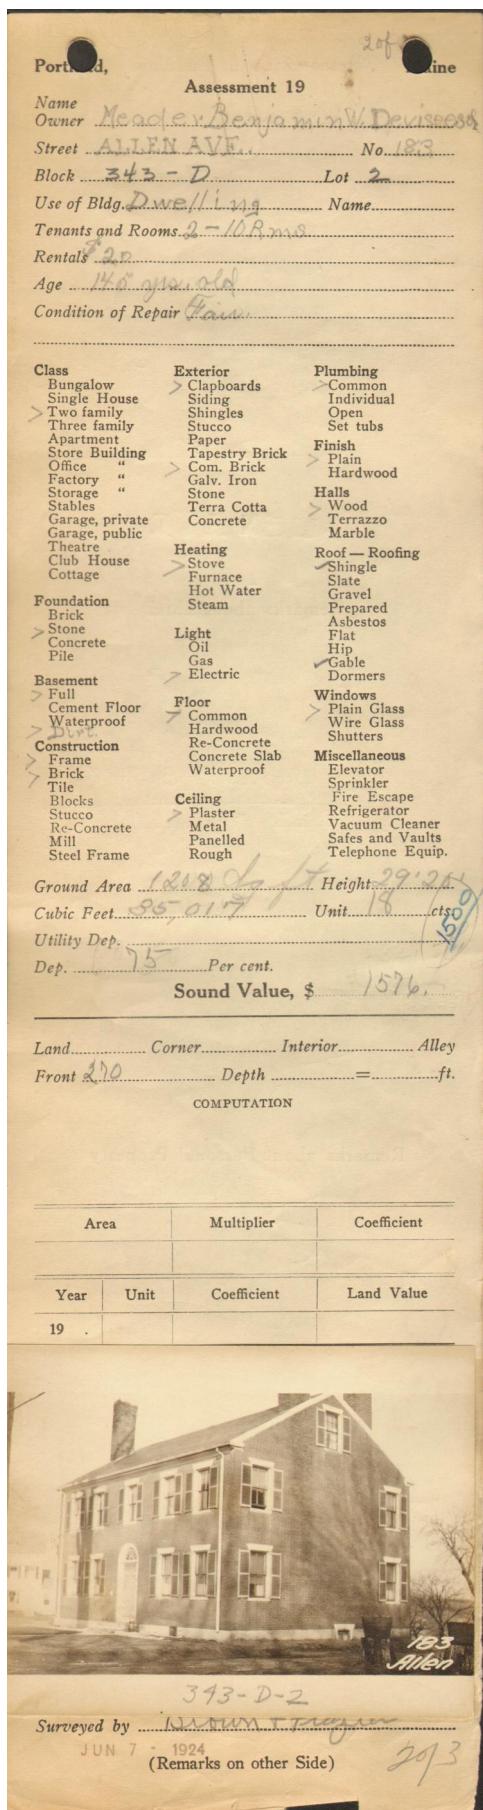 2 of 3
Portland, Maine
Assessment 19
Name
Owner Meader Benjamin W. Devisees of
Street ALLEN AVE. No. 183
Block 343 - D Lot 2
Use of Bldg. Dwelling Name
Tenants and Rooms 2 - 10 Rms
Rentals $20
Age 145 yrs. old
Condition of Repair Fair.
Class
Bungalow
Single House
> Two family
Three family
Apartment
Store Building
Office "
Factory "
Storage "
Stables
Garage, private
Garage, public
Theatre
Club House
Cottage
Foundation
Brick
> Stone
Concrete
Pile
Basement
> Full
Cement Floor
Waterproof
> Dirt.
Construction
> Frame
> Brick
Tile
Blocks
Stucco
Re-Concrete
Mill
Steel Frame
Exterior
> Clapboards
Siding
Shingles
Stucco
Paper
Tapestry Brick
> Com. Brick
Galv. Iron
Stone
Terra Cotta
Concrete
Heating
> Stove
Furnace
Hot Water
Steam
Light
Oil
Gas
> Electric
Floor
> Common
Hardwood
Re-Concrete
Concrete Slab
Waterproof
Ceiling
> Plaster
Metal
Panelled
Rough
Plumbing
> Common
Individual
Open
Set tubs
Finish
> Plain
Hardwood
Halls
> Wood
Terrazzo
Marble
Roof — Roofing
✓ Shingle
Slate
Gravel
Prepared
Asbestos
Flat
Hip
✓ Gable
Dormers
Windows
> Plain Glass
Wire Glass
Shutters
Miscellaneous
Elevator
Sprinkler
Fire Escape
Refrigerator
Vacuum Cleaner
Safes and Vaults
Telephone Equip.
Ground Area 1208 sq ft Height 29' 25'
Cubic Feet 35,017 Unit 18 cts.
1500
Utility Dep.
Dep. 75 Per cent.
Sound Value, $ 1576.
Land Corner Interior Alley
Front 270 Depth = ft.
COMPUTATION
Area Multiplier Coefficient
Year Unit Coefficient Land Value
19 .
183
Allen
343-D-2
Surveyed by Brown & Frazier
JUN 7 - 1924
(Remarks on other Side)
2 of 3